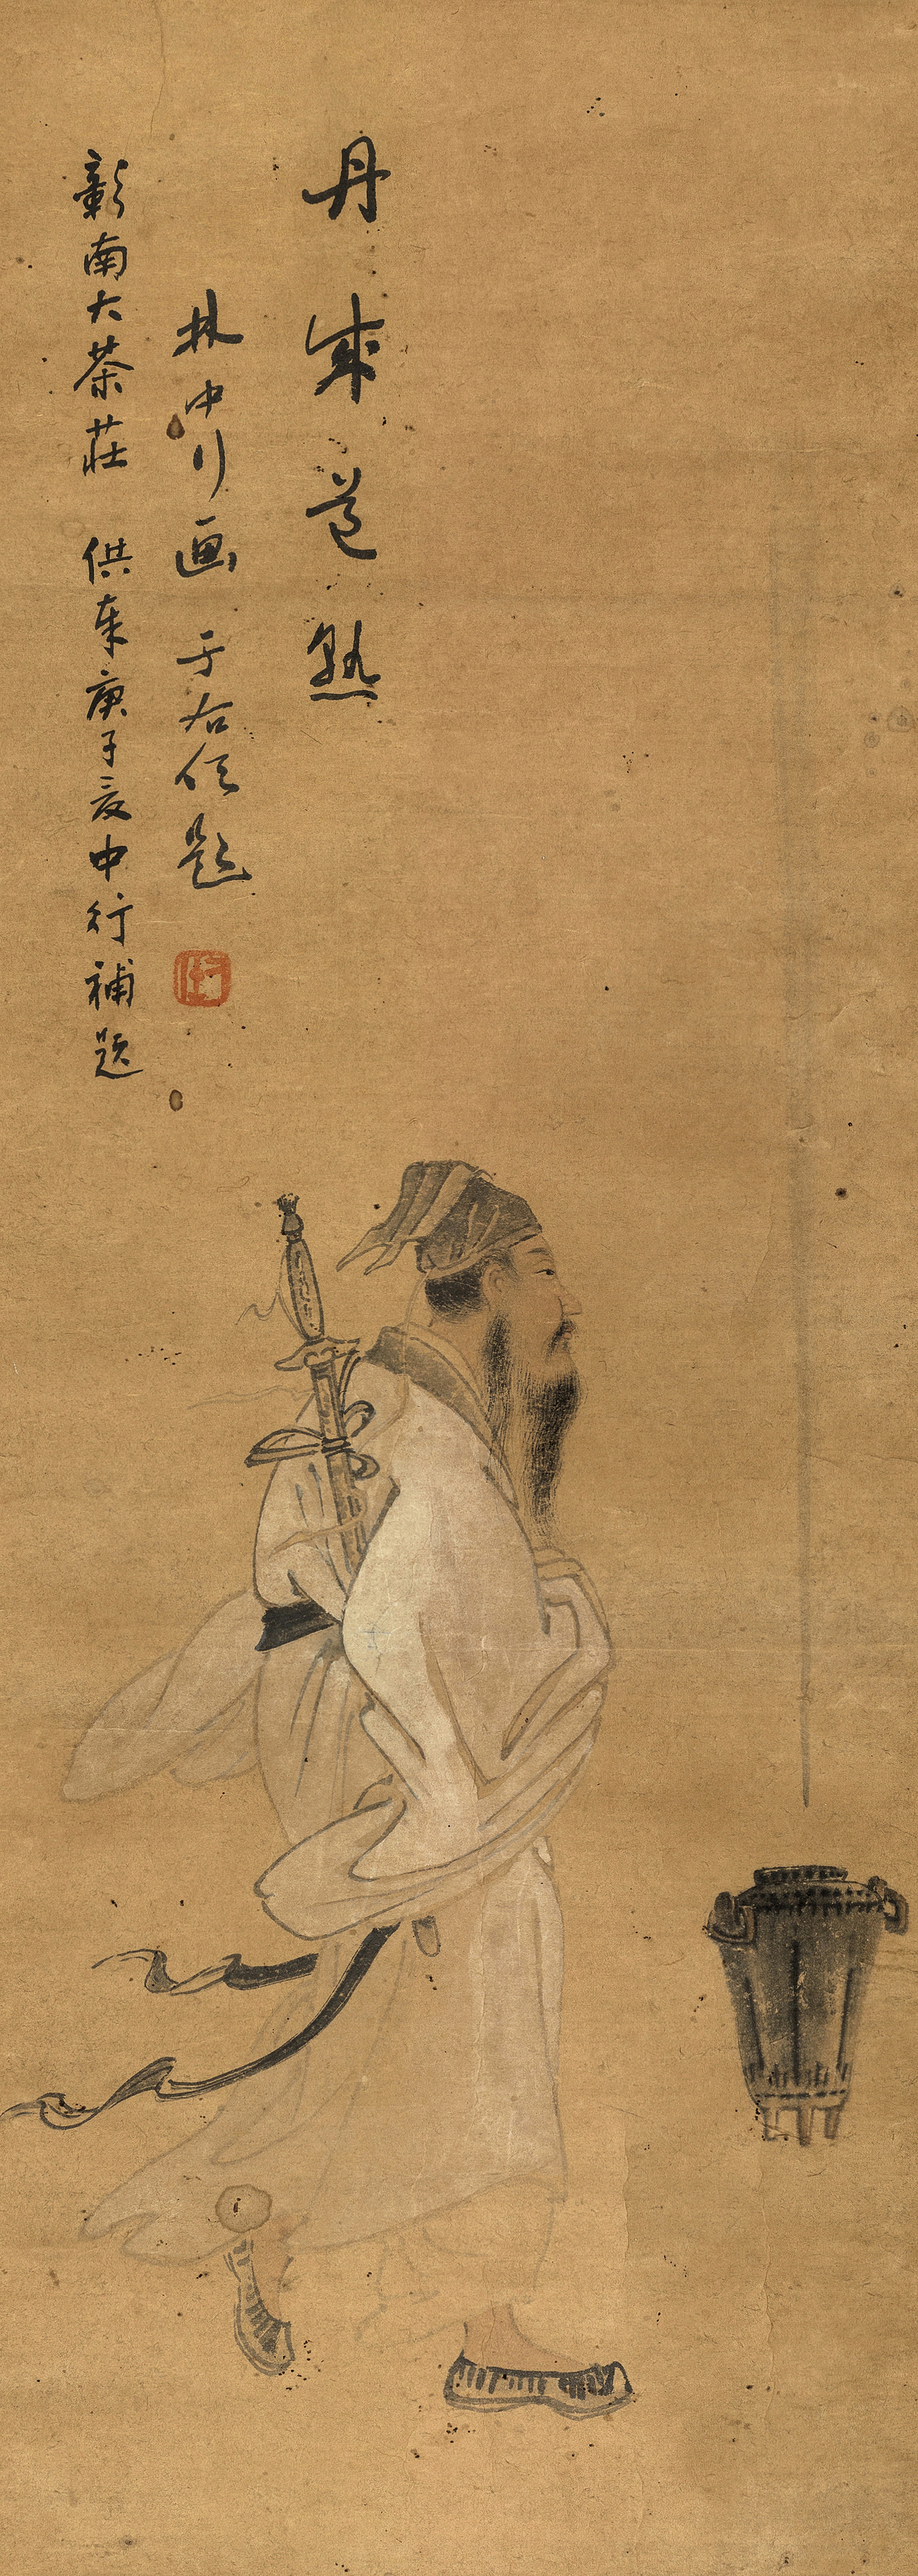 丹成道熟
林中行画 于右任題
彰南大茶莊 供奉庚子夏中行補題